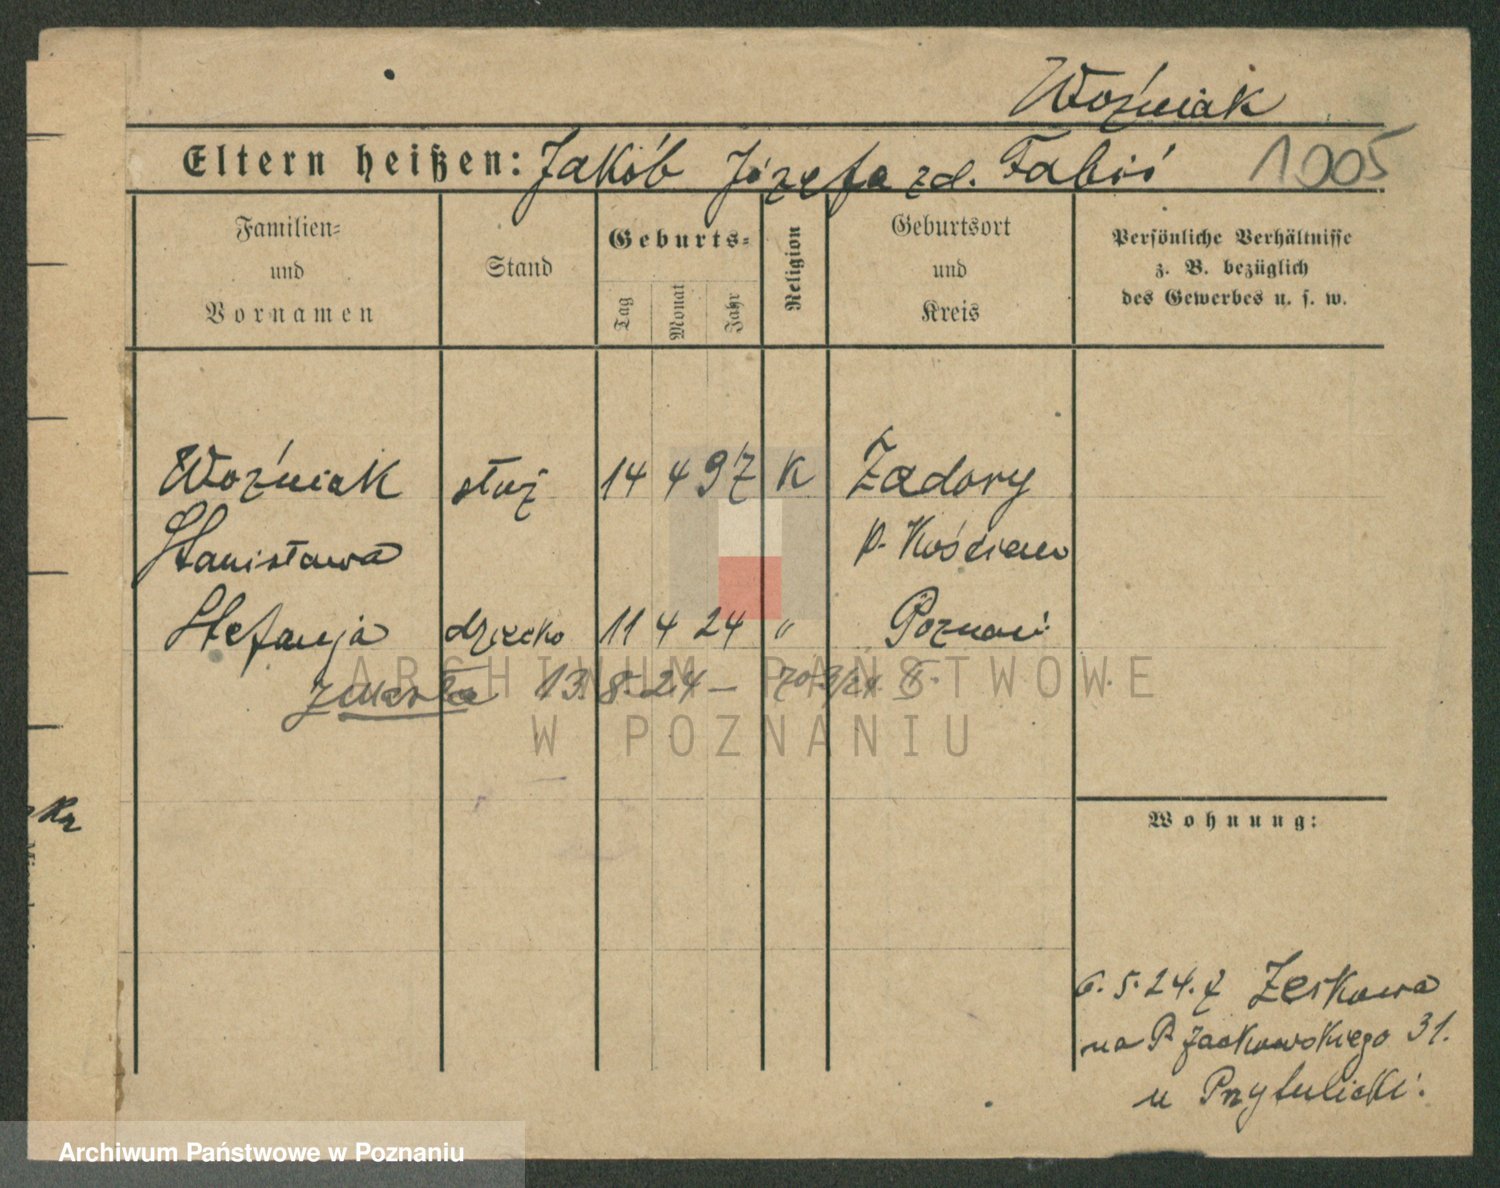 Woźniak
Eltern heißen: Jakób Józefa zd. Fabiś 1005
Familien=
und
Vornamen
Stand
Geburts=
Tag
Monat
Jahr
Religion
Geburtsort
und
Kreis
Persönliche Verhältnisse
z. B. bezüglich
des Gewerbes u. s. w.
Woźniak służ 14 4 97 K Zadory
Stanisława p. Kościan
Stefanja dziecko 11 4 24 " Poznań
zmarła 13. 8. 24 –
Wohnung:
6. 5. 24. z Żerkowa
na P. Jackowskiego 31.
u Przytulicki.
ARCHIWUM PAŃSTWOWE
W POZNANIU
Archiwum Państwowe w Poznaniu